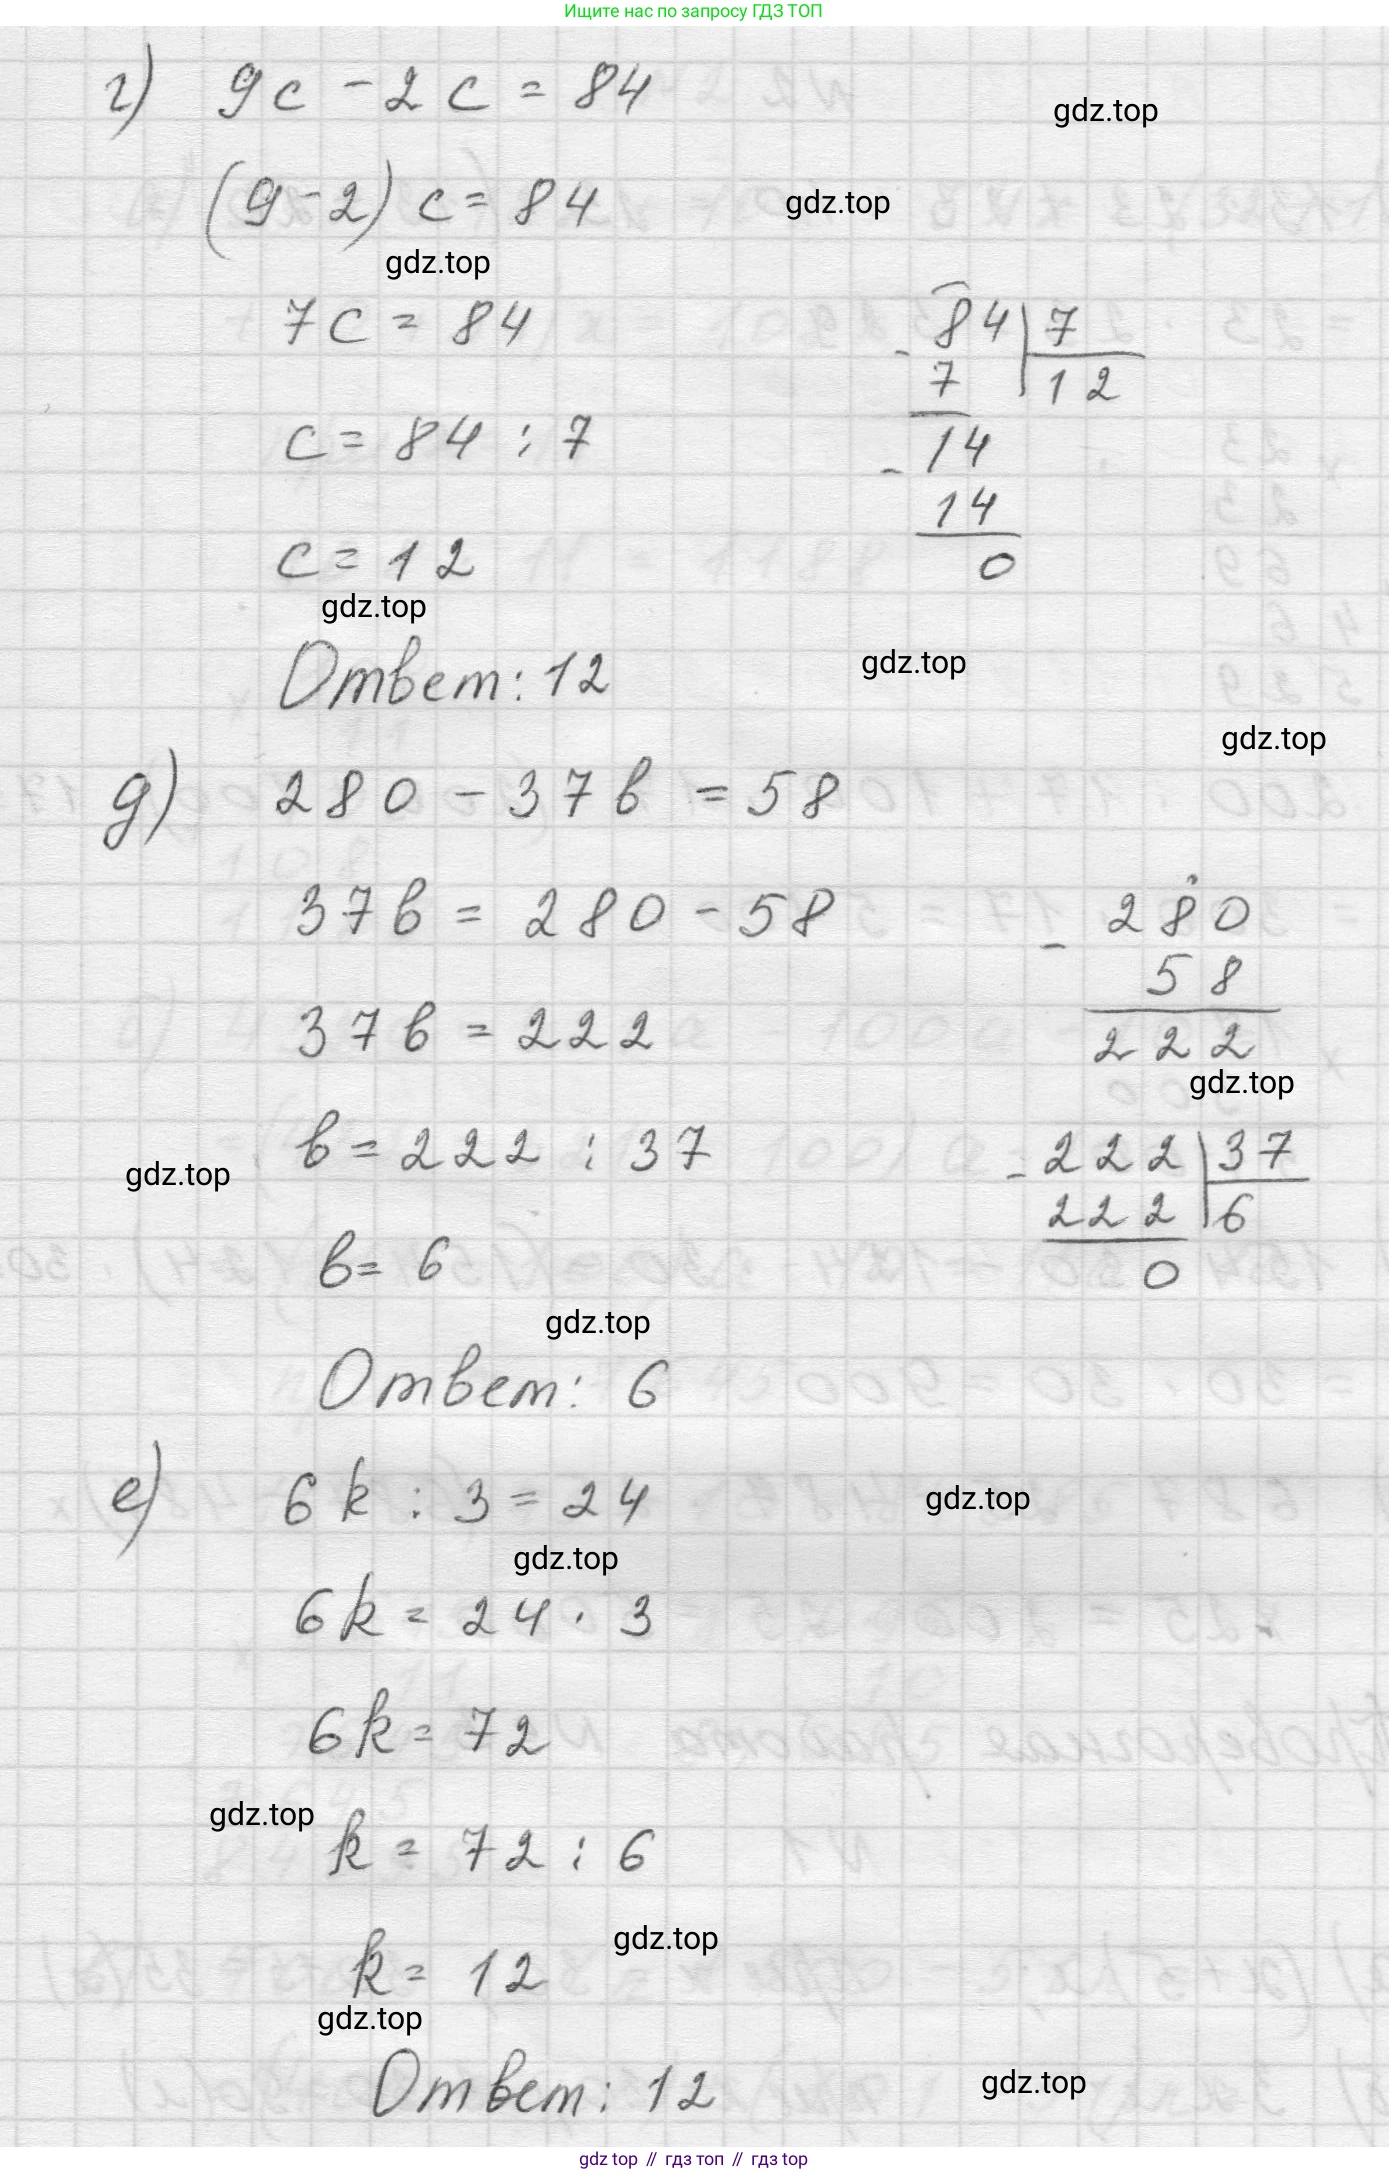 Ищите нас по запросу ГДЗ ТОП
г) 9c - 2c = 84
gdz.top
(9-2) c = 84
gdz.top
gdz.top
7c = 84
84 | 7
- 7 | 12
c = 84 : 7
- 14
14
0
c = 12
gdz.top
Ответ: 12
gdz.top
gdz.top
д) 280 - 37b = 58
37b = 280 - 58
- 280
58
222
gdz.top
37b = 222
b = 222 : 37
gdz.top
- 222 | 37
222 | 6
0
b = 6
gdz.top
Ответ: 6
е) 6k : 3 = 24
gdz.top
gdz.top
6k = 24 · 3
6k = 72
gdz.top
k = 72 : 6
gdz.top
k = 12
gdz.top
Ответ: 12
gdz.top
gdz top // гдз топ // гдз top